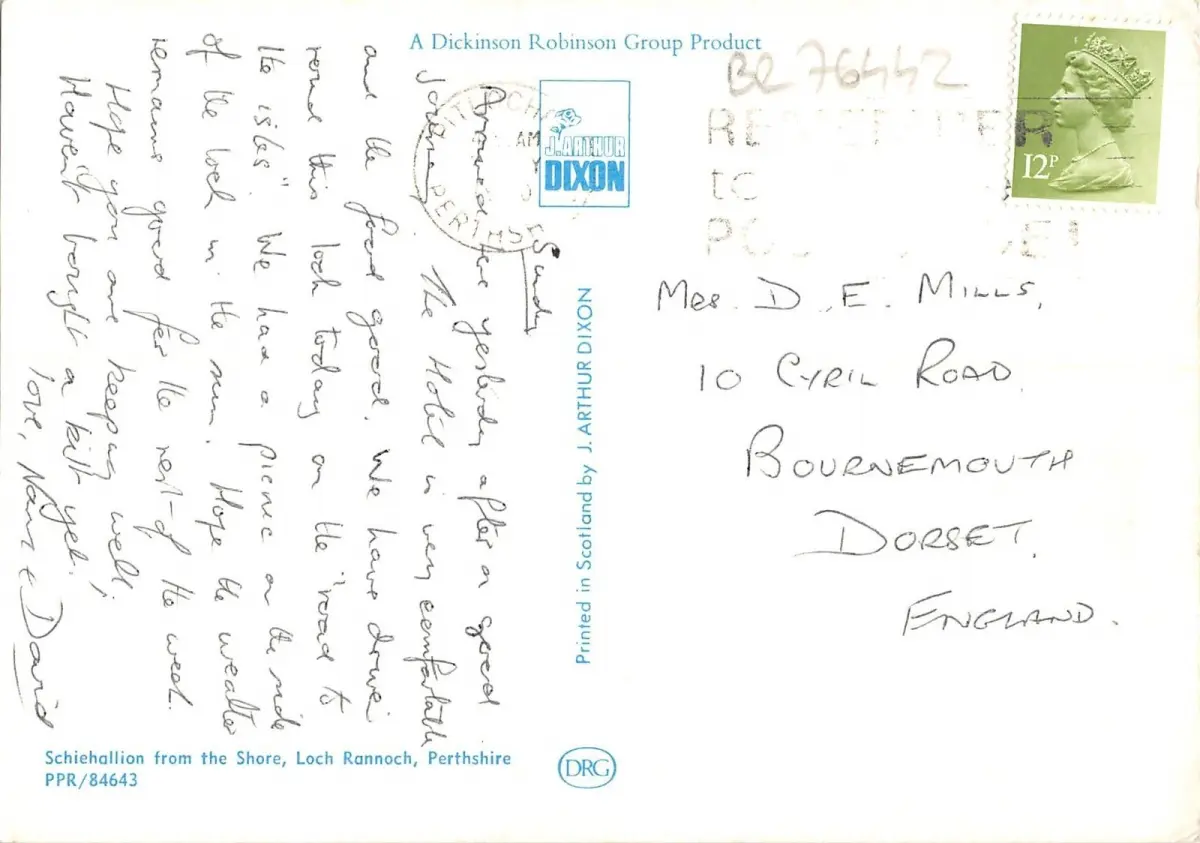 A Dickinson Robinson Group Product
BR 76442
J. ARTHUR
DIXON
PERTHS
AM
12P
REMEMBER
to
Sunday
Arrived here yesterday after a good
journey. The Hotel is very comfortable
and the food good. We have driven
round this loch today on the "road to
the isles". We had a picnic on the side
of the loch in the sun. Hope the weather
remains good for the rest of the week.
Hope you are keeping well,
Haven't bought a kilt yet!
love, Nan & David
Printed in Scotland by J. ARTHUR DIXON
MRS. D. E. MILLS,
10 CYRIL ROAD
BOURNEMOUTH
DORSET.
ENGLAND.
Schiehallion from the Shore, Loch Rannoch, Perthshire
PPR/84643
DRG